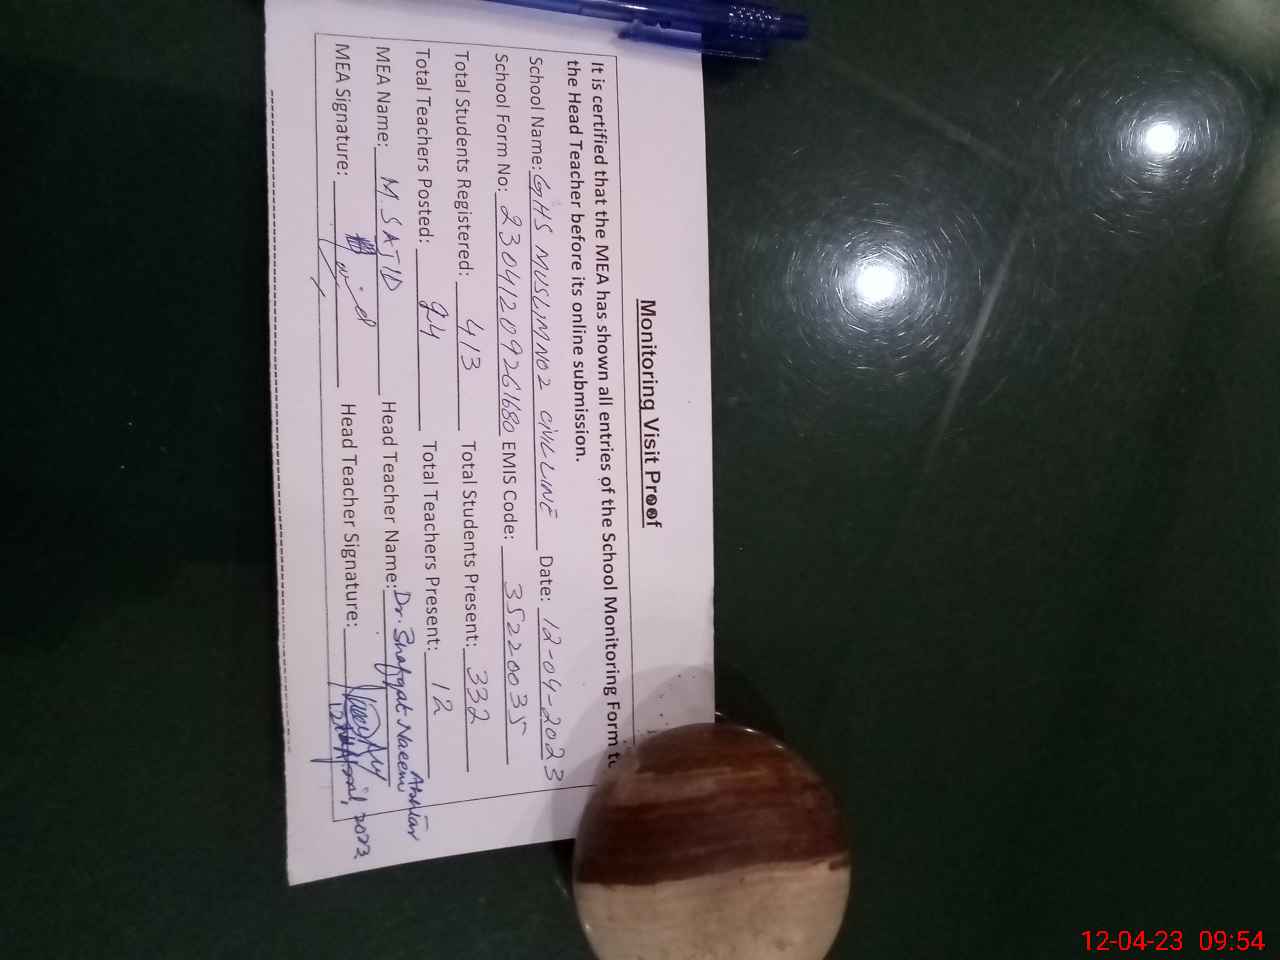 Monitoring Visit Proof
It is certified that the MEA has shown all entries of the School Monitoring Form to
the Head Teacher before its online submission.
School Name: GHS MUSLIM NO2 CIVIL LINE Date: 12-04-2023
School Form No: 23041209261680 EMIS Code: 35220035
Total Students Registered: 413 Total Students Present: 332
Total Teachers Posted: 24 Total Teachers Present: 12
MEA Name: M. SAJID Head Teacher Name: Dr. Shafqat Naeem Akhtar
MEA Signature: Head Teacher Signature:
12th April, 2023
12-04-23 09:54